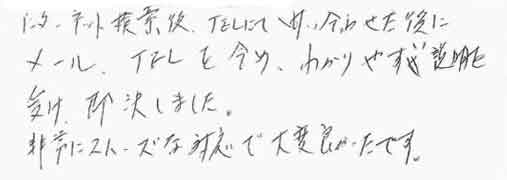 インターネット検索後、TELにて問い合わせた後に
メール、TELを含め、わかりやすい説明を
受け、即決しました。
非常にスムーズな対応で大変良かったです。